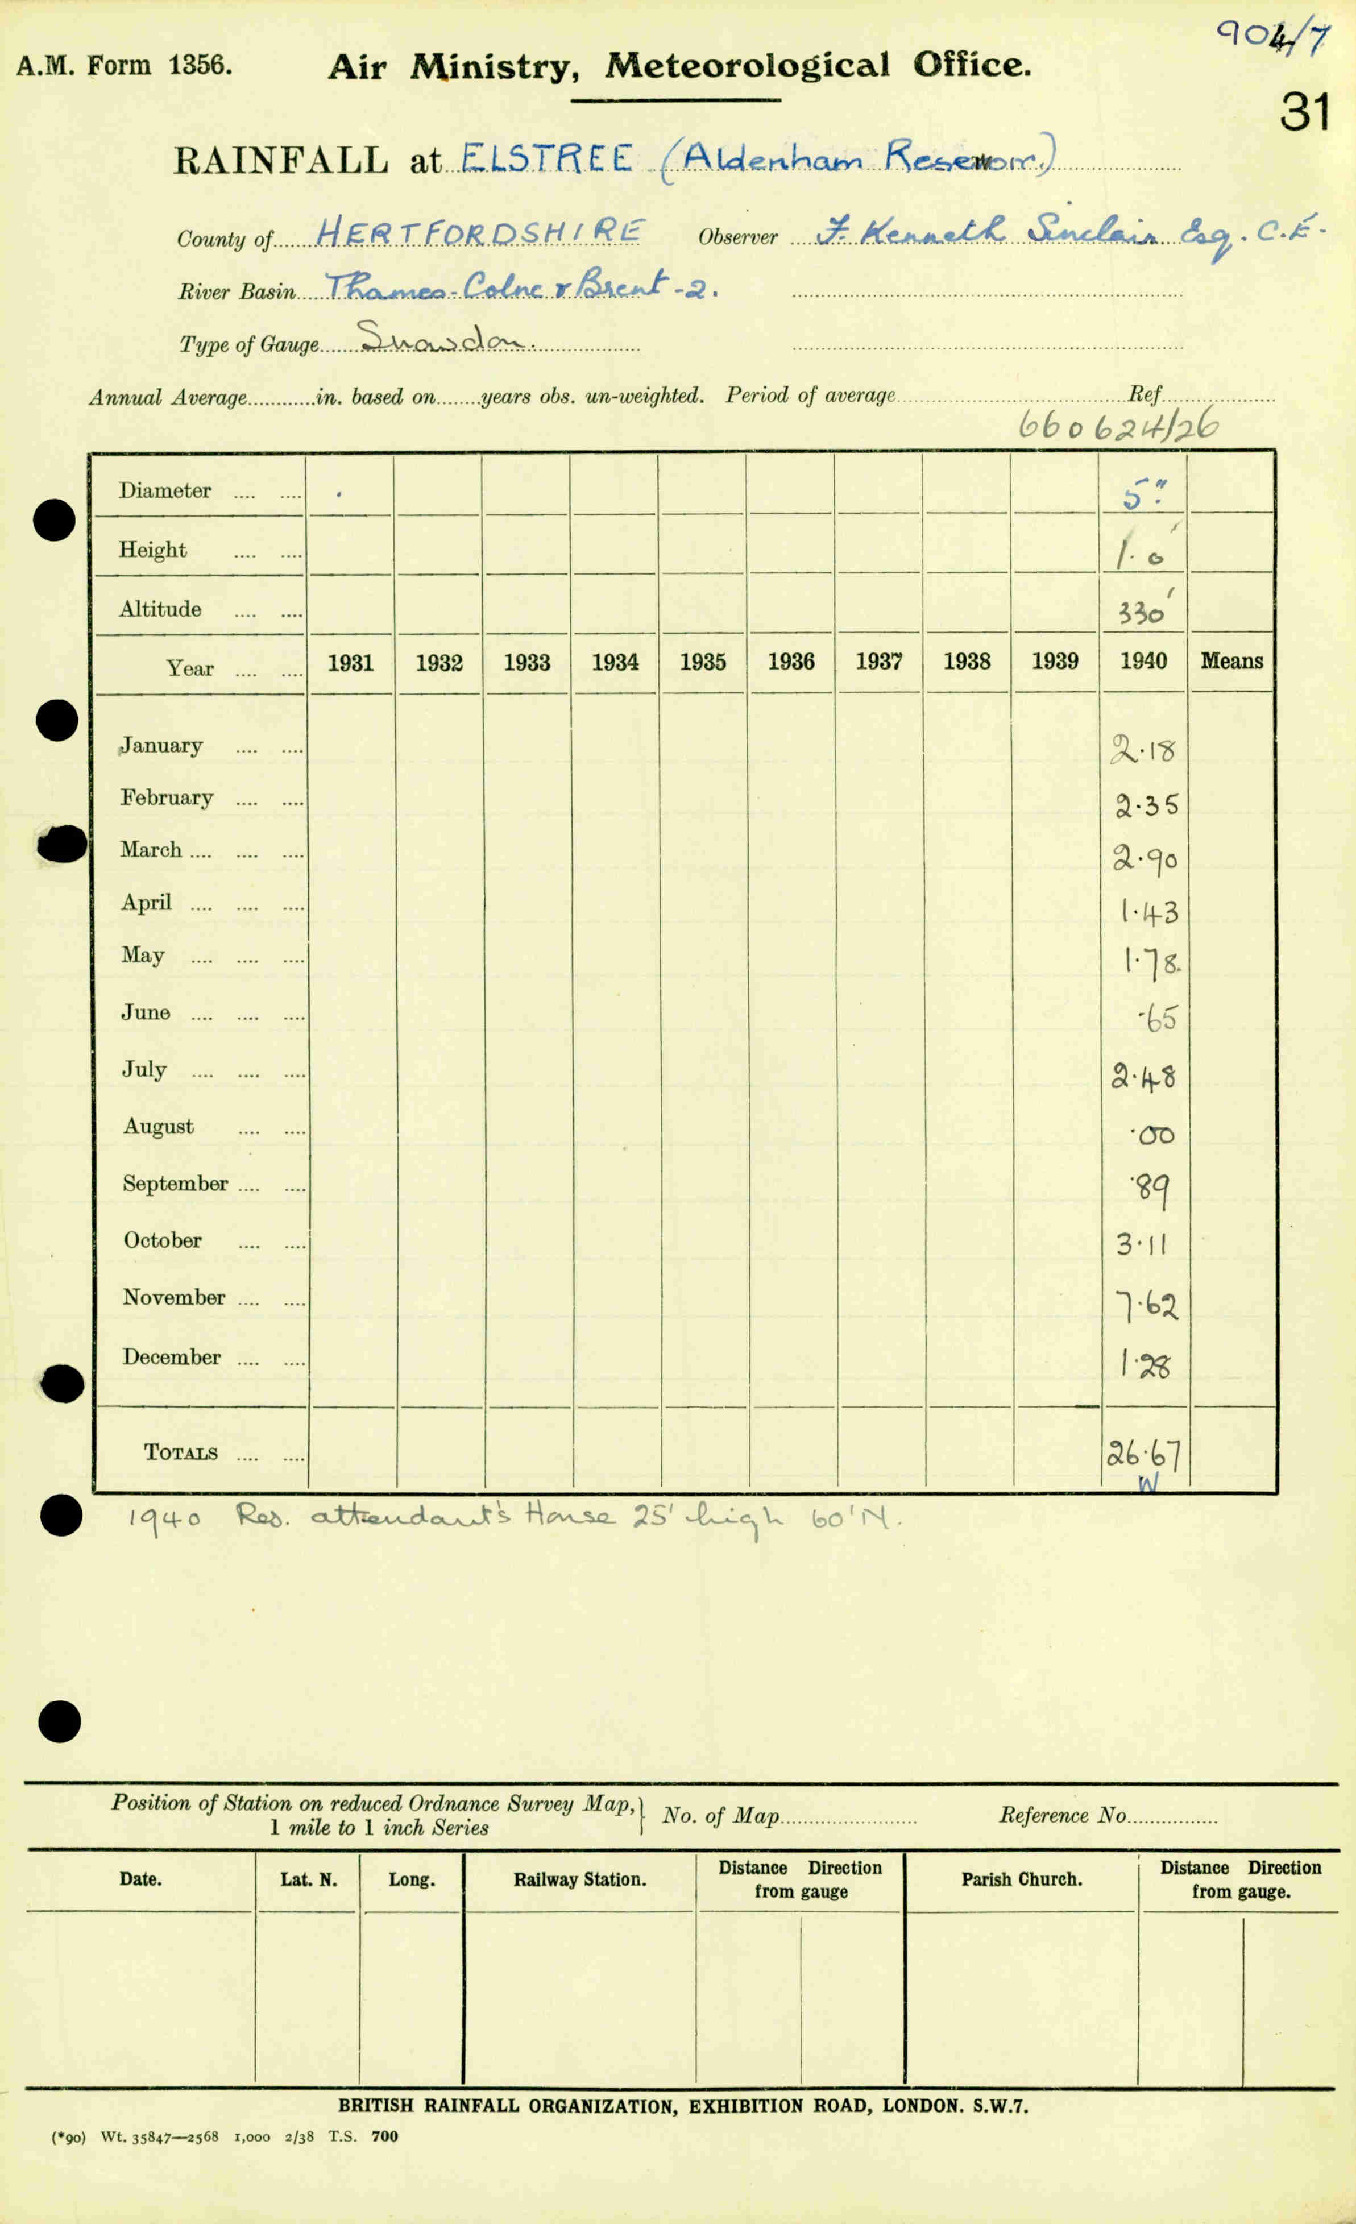 904/7
A.M. Form 1356. Air Ministry, Meteorological Office.
31
RAINFALL at ELSTREE (Aldenham Reservoir.)
County of HERTFORDSHIRE Observer F. Kenneth Sinclair Esq. C.E.
River Basin Thames-Colne & Brent-2.
Type of Gauge Snowdon.
Annual Average............in. based on........years obs. un-weighted. Period of average.............Ref.............
660624/26
Diameter .... .... 5"
Height .... .... 1.0'
Altitude .... .... 330'
Year .... .... 1931 1932 1933 1934 1935 1936 1937 1938 1939 1940 Means
January .... .... 2.18
February .... .... 2.35
March .... .... .... 2.90
April .... .... .... 1.43
May .... .... .... 1.78
June .... .... .... .65
July .... .... .... 2.48
August .... .... .00
September .... .... .89
October .... .... 3.11
November .... .... 7.62
December .... .... 1.28
TOTALS .... .... 26.67
W
1940 Res. attendant's House 25' high 60'N.
Position of Station on reduced Ordnance Survey Map, } No. of Map............ Reference No............
1 mile to 1 inch Series
Date. Lat. N. Long. Railway Station. Distance Direction from gauge Parish Church. Distance Direction from gauge.
BRITISH RAINFALL ORGANIZATION, EXHIBITION ROAD, LONDON. S.W.7.
(*90) Wt. 35847—2568 1,000 2/38 T.S. 700